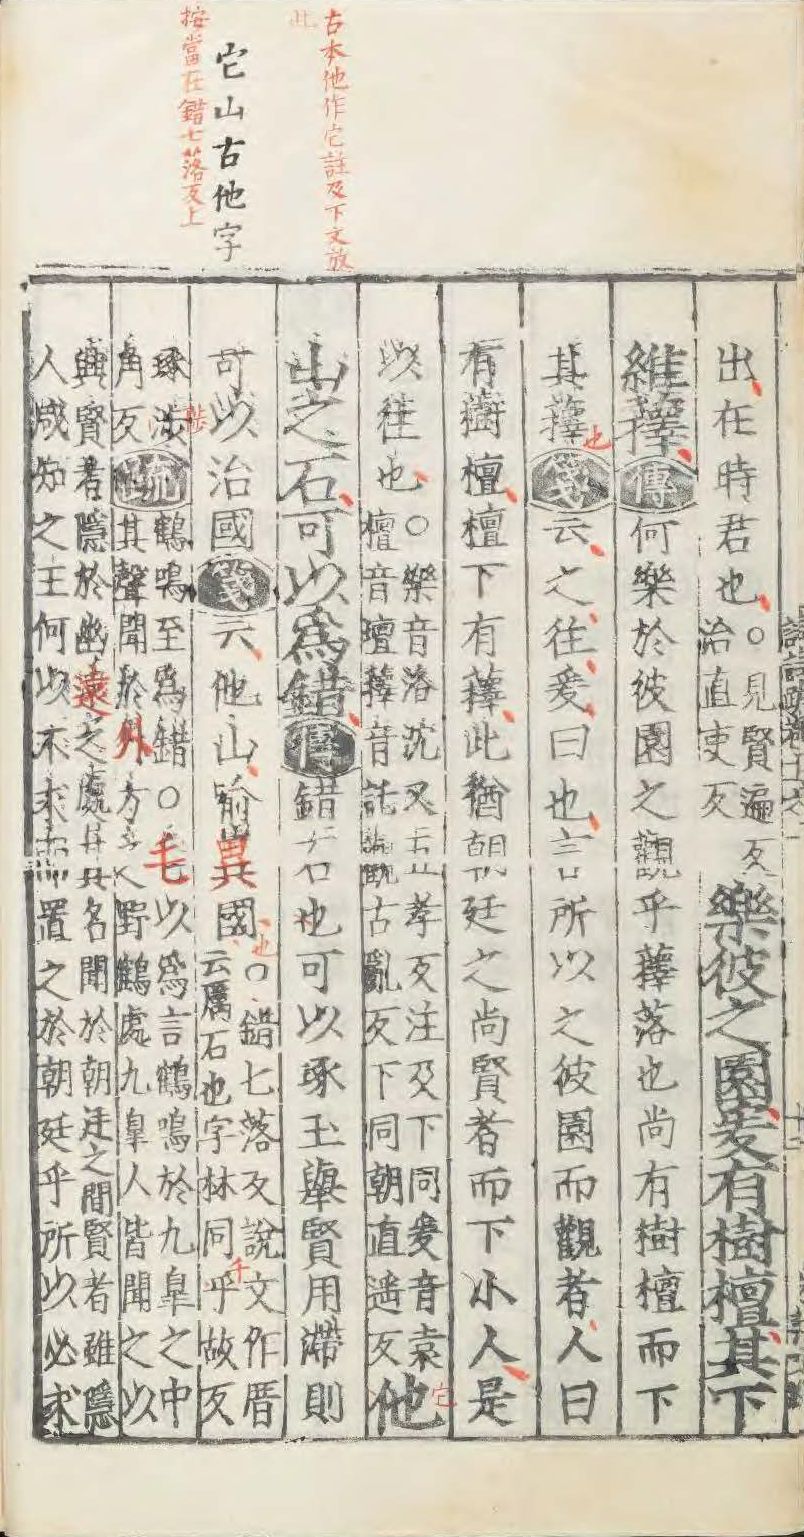 古本他作它註及下文放
此
它山古他字
按當在錯七落反上
出在時君也○見賢遍反
治直吏反
樂彼之園爰有樹檀其下
維蘀傳何樂於彼園之觀乎蘀落也尚有樹檀而下
其蘀也箋云之往爰曰也言所以之彼園而觀者人曰
有樹檀檀下有蘀此猶朝廷之尚賢者而下小人是
以往也○樂音洛沈又五孝反注及下同爰音袁
檀音壇蘀音託觀古亂反下同朝直遥反
他它
山之石可以為錯傳錯石也可以琢玉舉賢用滯則
可以治國箋云他山喻異國也○錯七落反說文作厝
云厲石也字林同千故反
琢涉陟
角反疏鶴鳴至為錯○毛以為言鶴鳴於九皐之中
其聲聞於外方之野鶴處九皐人皆聞之以
興賢者隱於幽遠之處其名聞於朝廷之間賢者雖隱
人咸知之王何以不求置之於朝廷乎所以必求